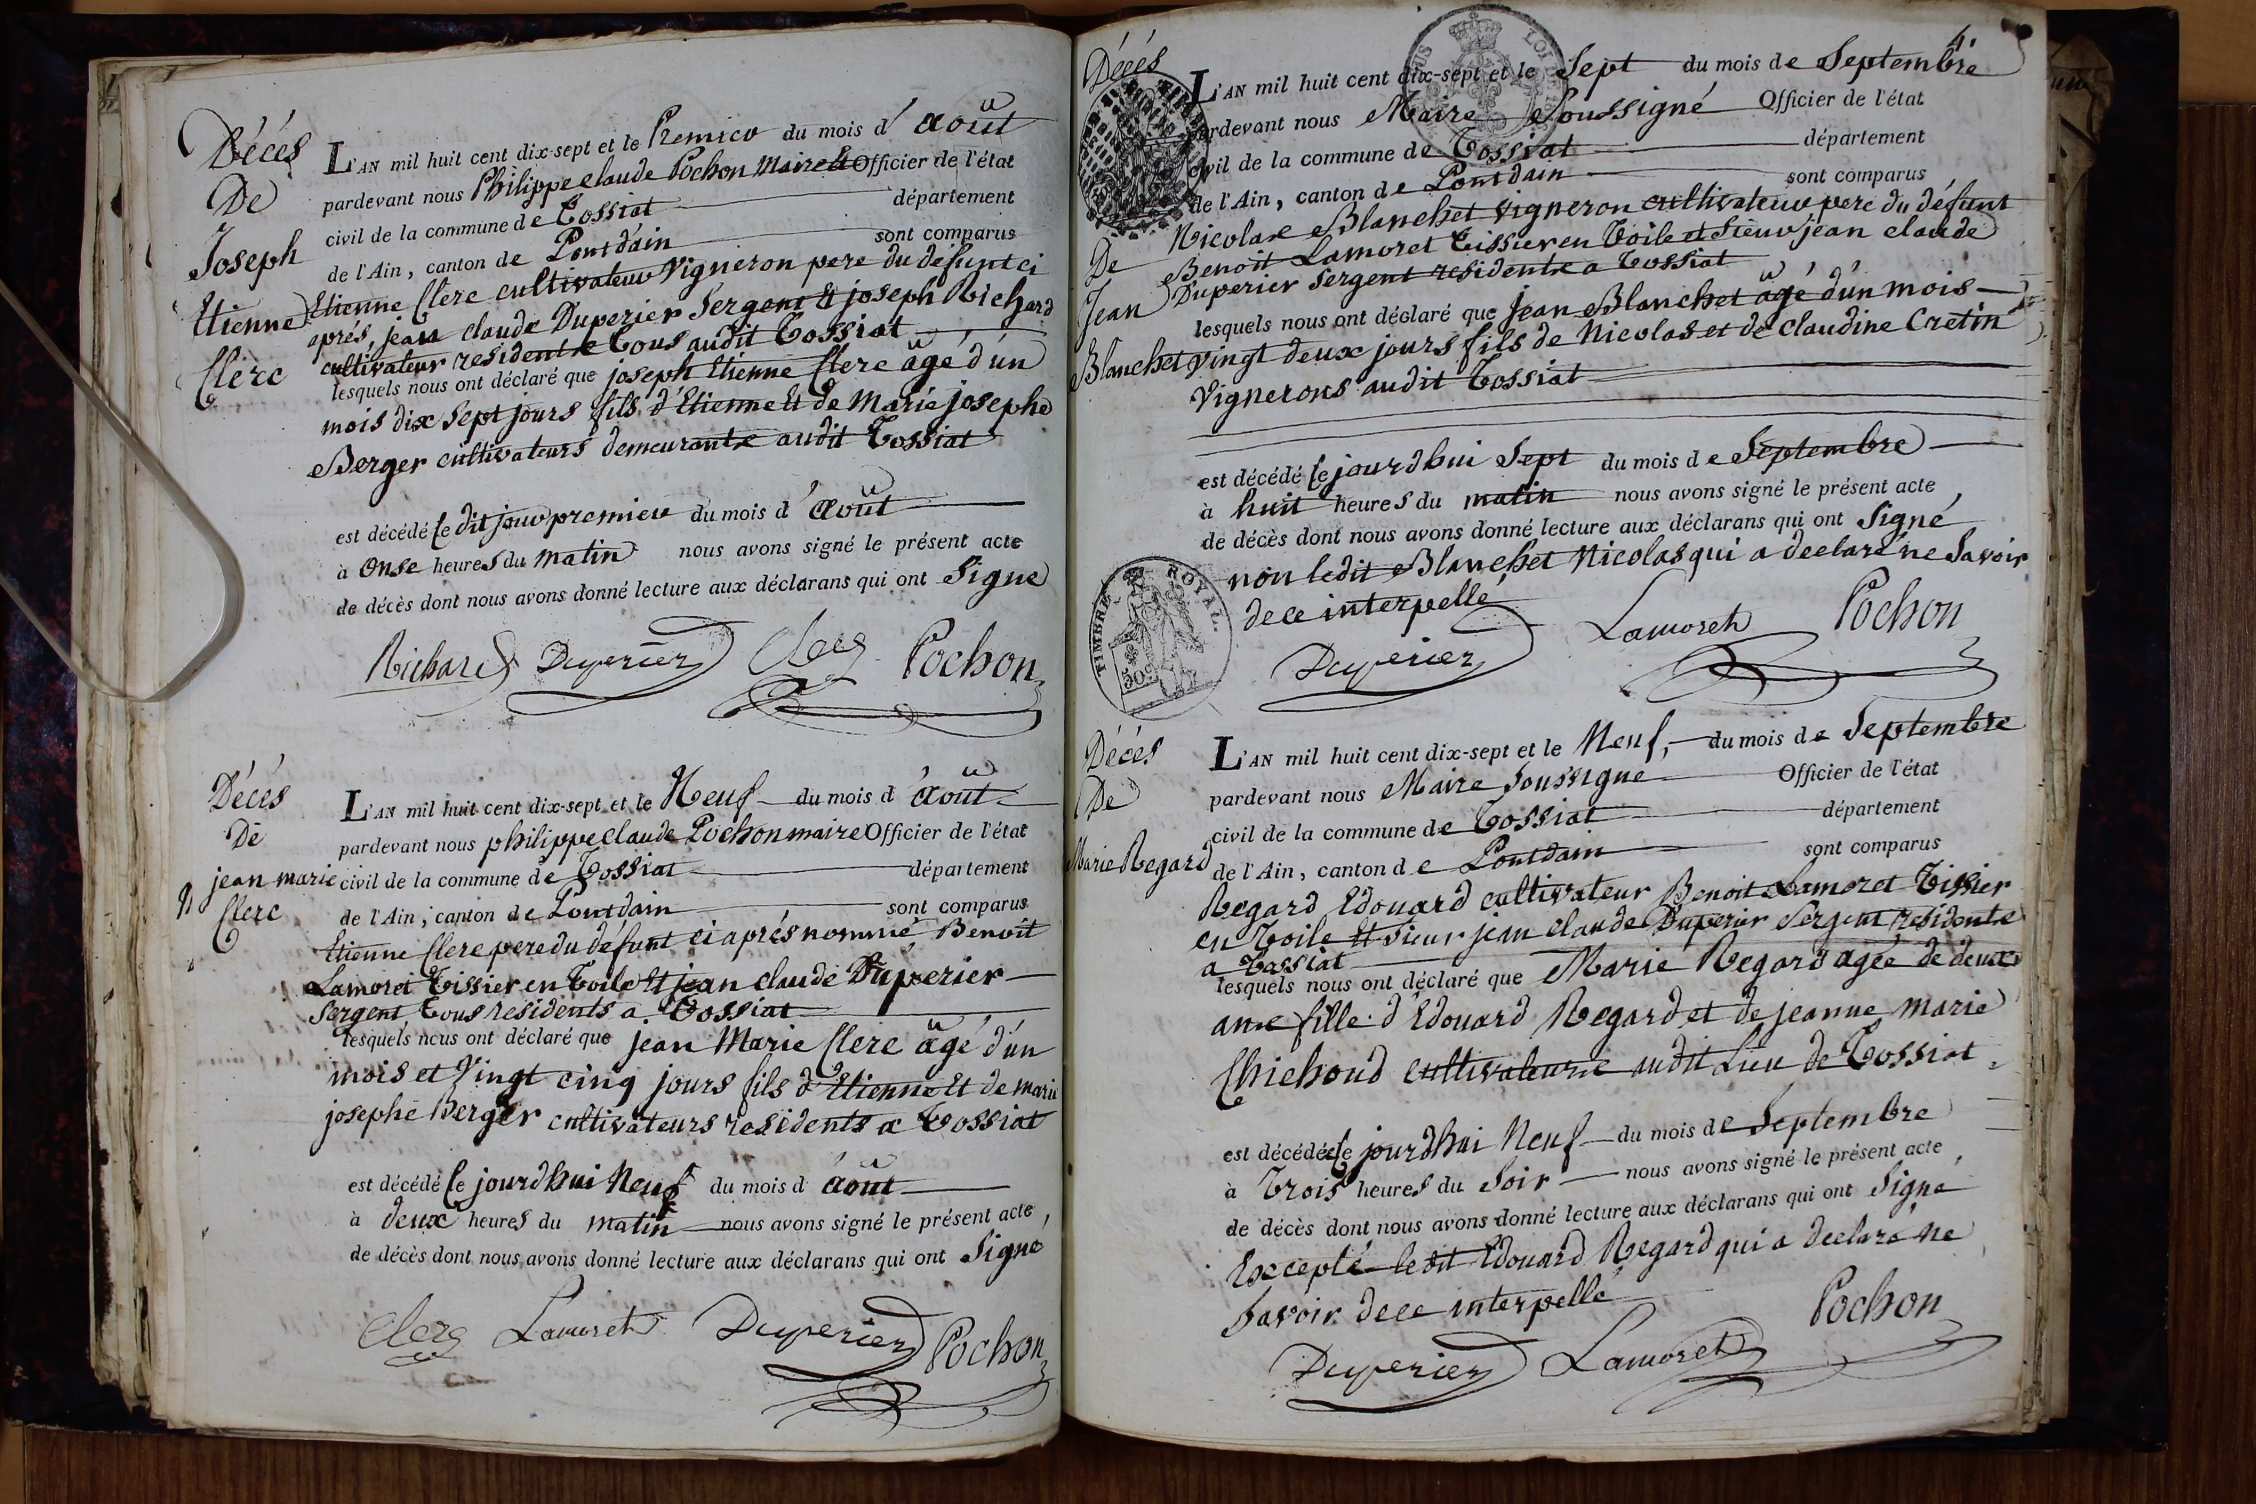 Décés
De
Joseph
Etienne
Clerc
L'AN mil huit cent dix-sept et le Premier du mois d' aoüt
pardevant nous Philippe claude Pochon Maire Et Officier de l'état
civil de la commune de Tossiat département
de l'Ain, canton de Pontdain sont comparus
Etienne Clerc cultivateur Vigneron pere du défunt ci
aprés, jean claude Duperier Sergent Et joseph Richard
cultivateur residents Tous audit Tossiat
lesquels nous ont déclaré que joseph Etienne Clerc âgé d'un
mois dix Sept jours fils d'Etienne Et de Marie josephe
Berger cultivateurs demeurants audit Tossiat
est décédé le dit jour premier du mois d' aoüt
à onse heures du matin nous avons signé le présent acte
de décès dont nous avons donné lecture aux déclarans qui ont Signé
Richard Duperier Clerc Pochon
Décés
De
jean marie
Clerc
L'AN mil huit cent dix-sept et le Neuf du mois d' aoüt
pardevant nous philippe claude Pochon maire Officier de l'état
civil de la commune de Tossiat département
de l'Ain, canton de Pontdain sont comparus
Etienne Clerc pere du défunt ci aprés nommé Benoit
Lamoret Tissier en Toile Et jean claude Duperier
Sergent Tous residents a Tossiat
lesquels nous ont déclaré que jean Marie Clerc âgé d'un
mois et Vingt cinq jours fils d'Etienne Et de marie
josephe Berger cultivateurs residents a Tossiat
est décédé le jourdhui Neuf du mois d' aoüt
à deux heures du matin nous avons signé le présent acte,
de décès dont nous avons donné lecture aux déclarans qui ont Signé
Clerc Lamoret Duperier Pochon
4.
Décés
De
Jean
Blanchet
L'AN mil huit cent dix-sept et le Sept du mois de Septembre
pardevant nous Maire Soussigné Officier de l'état
civil de la commune de Tossiat département
de l'Ain, canton de Pontdain sont comparus
Nicolas Blanchet vigneron cultivateur pere du défunt
Benoit Lamoret Tissier en Toile et Sieur jean claude
Duperier Sergent residents a Tossiat
lesquels nous ont déclaré que jean Blanchet âgé d'un mois
vingt deux jours fils de Nicolas et de claudine Cretin
Vignerons audit Tossiat
est décédé le jourdhui Sept du mois de Septembre
à huit heures du matin nous avons signé le présent acte
de décès dont nous avons donné lecture aux déclarans qui ont Signé
non ledit Blanchet Nicolas qui a declaré ne Savoir
de ce interpellé
TIMBRE ROYAL.
Duperier Lamoret Pochon
Décés
De
Marie Regard
L'AN mil huit cent dix-sept et le Neuf, du mois de Septembre
pardevant nous Maire Soussigné Officier de l'état
civil de la commune de Tossiat département
de l'Ain, canton de Pontdain sont comparus
Regard Edouard cultivateur Benoit Lamoret Tissier
en Toile Et Sieur jean claude Duperier Sergent residents
a Tossiat
lesquels nous ont déclaré que Marie Regard agée de deux
ans fille d'Edouard Regard et de jeanne marie
Chichoud cultivateurs audit Lieu de Tossiat
est décédée le jourdhui Neuf du mois de Septembre
à Trois heures du Soir nous avons signé le présent acte,
de décès dont nous avons donné lecture aux déclarans qui ont Signé
Excepté le dit Edouard Regard qui a declaré ne
Savoir de ce interpellé
Duperier Lamoret Pochon